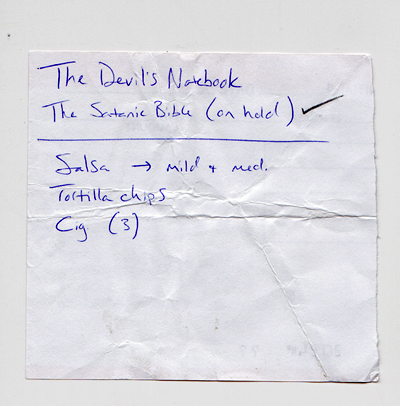 The Devil's Notebook
The Satanic Bible (on hold) ✓
Salsa → mild + med.
Tortilla chips
Cig (3)